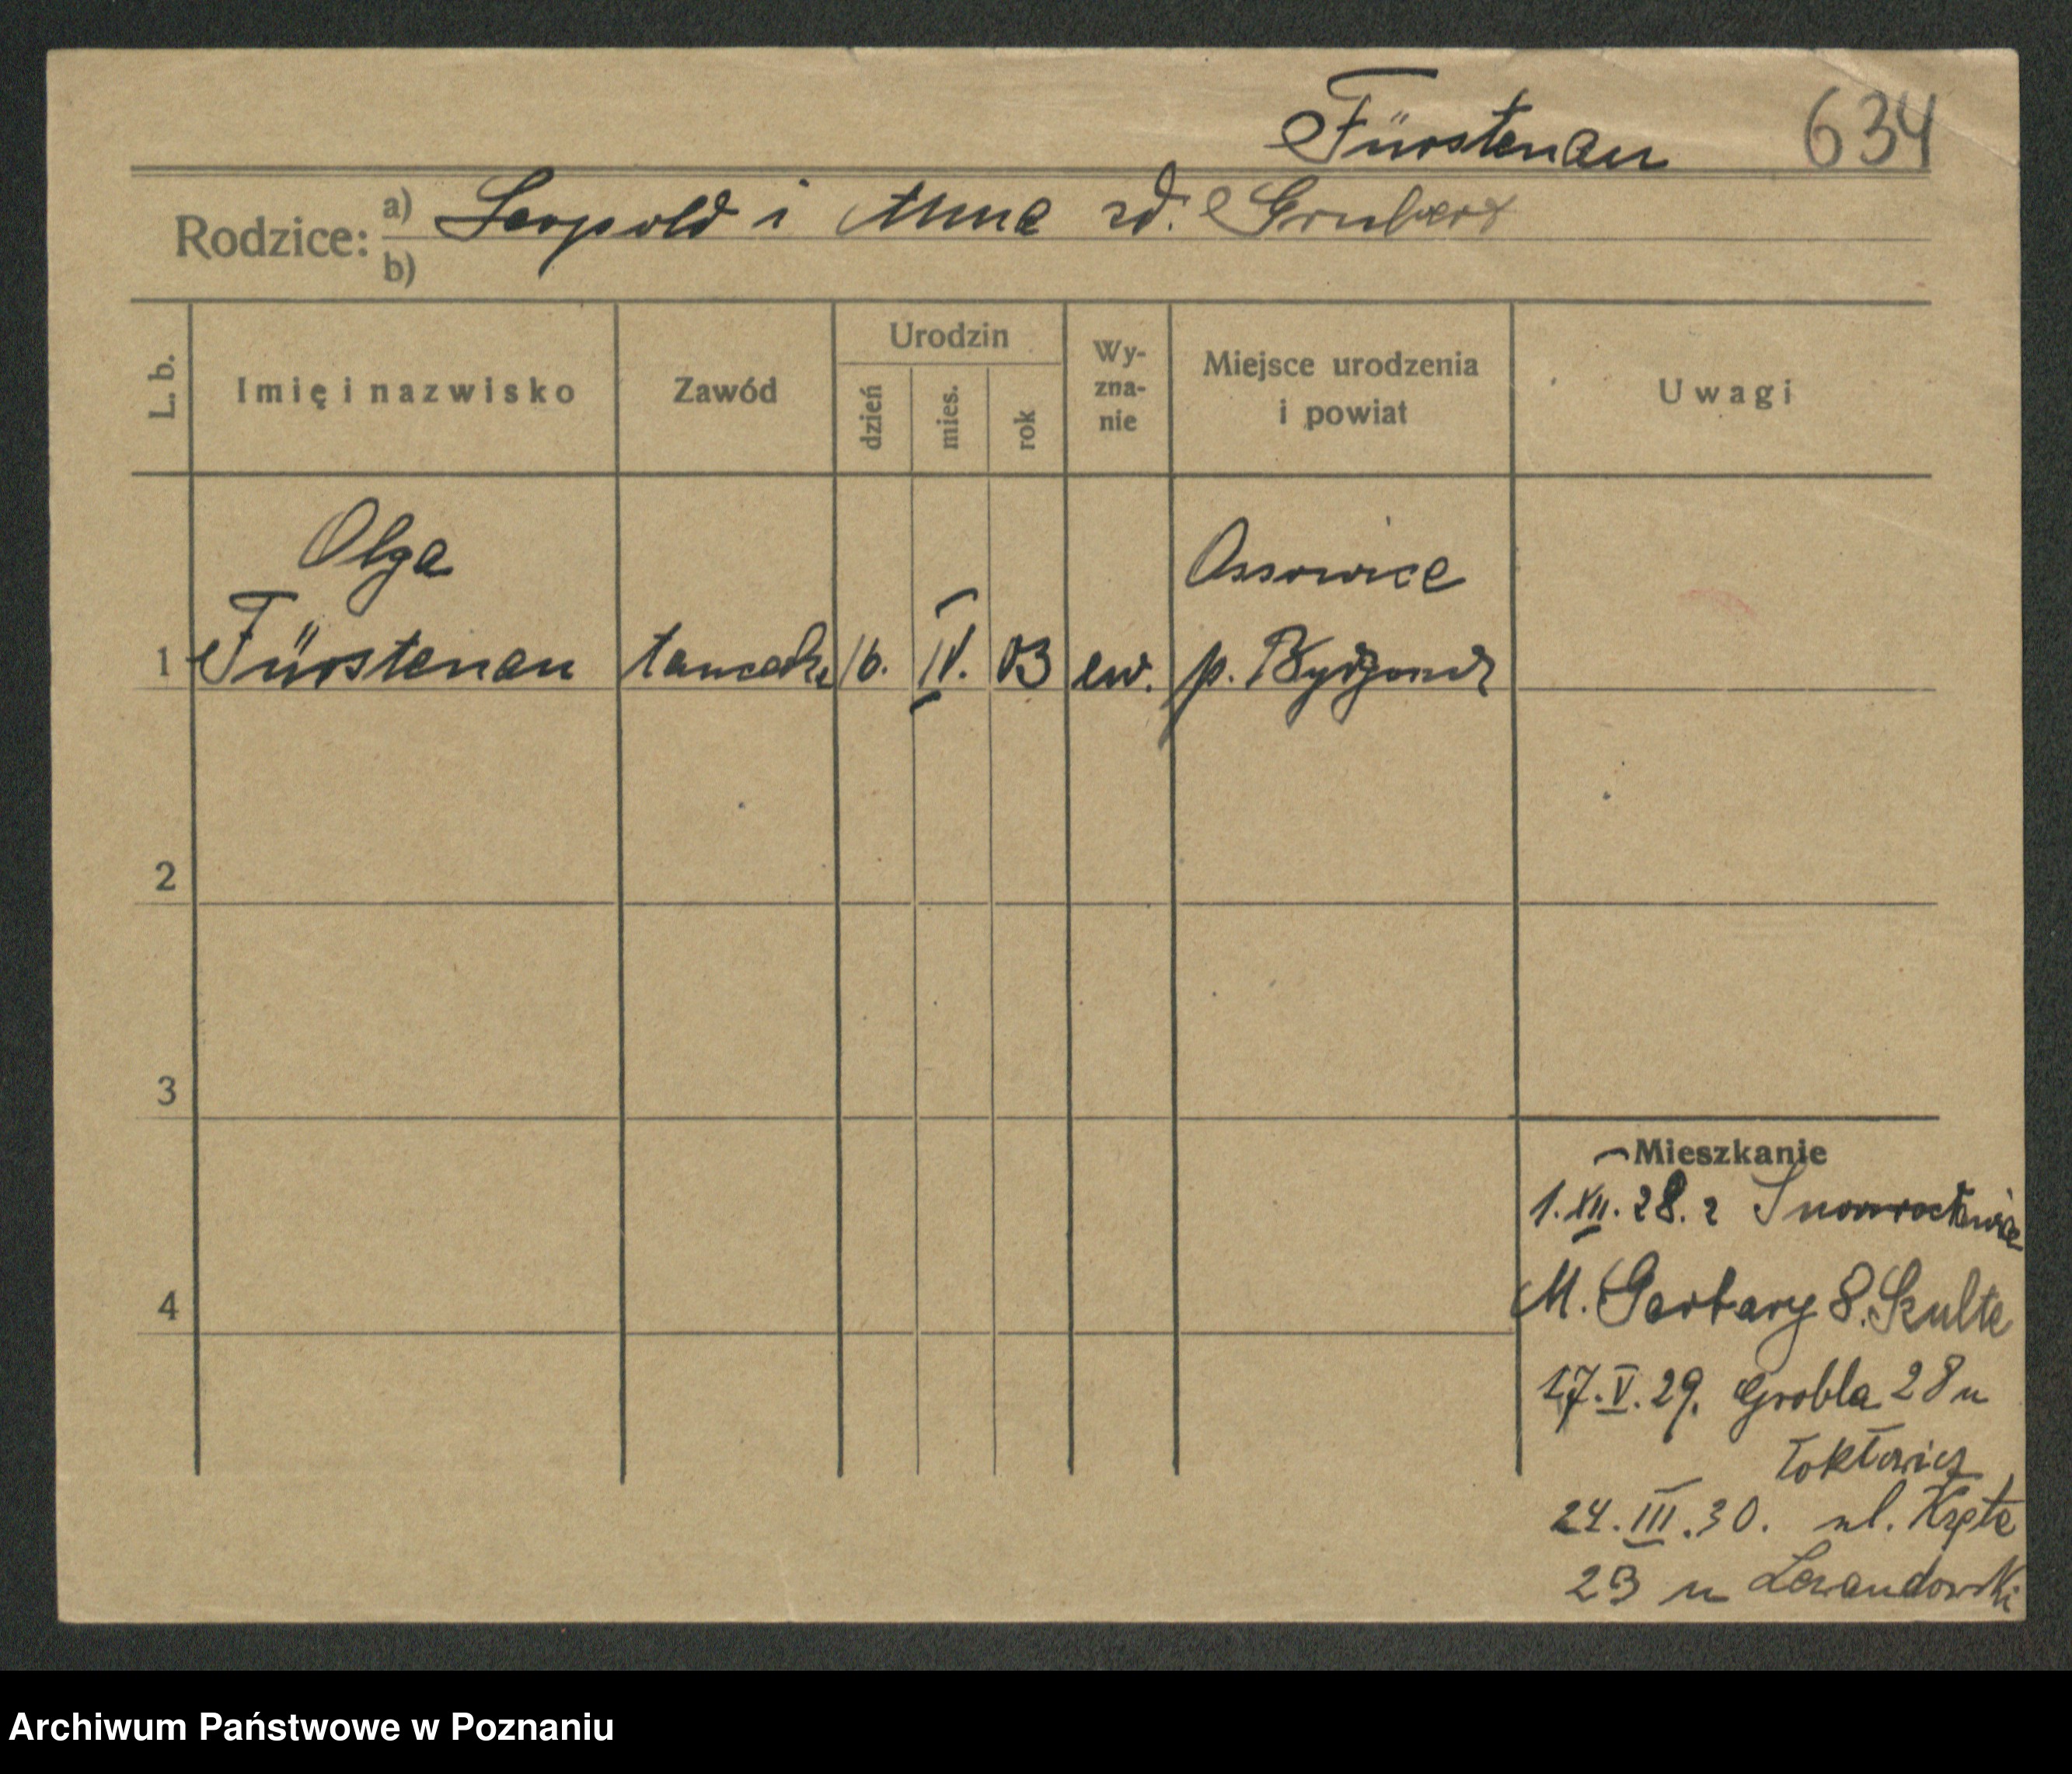 Fürstenau 634
Rodzice: a) Leopold i Anna zd. Grubert
b)
L. b. Imię i nazwisko Zawód Urodzin dzień mies. rok Wy-zna-nie Miejsce urodzenia i powiat Uwagi
Olga Ossowice
1 Fürstenau 16. IV. 03 ew. p. Bydgoszcz
2
3
Mieszkanie
1. XII. 28. z Inowrocławia
4 M. Garbary 8. Szulte
17. V. 29. Grobla 28 u
24. III. 30. ul. Kręta
23 u Lewandowski
Archiwum Państwowe w Poznaniu